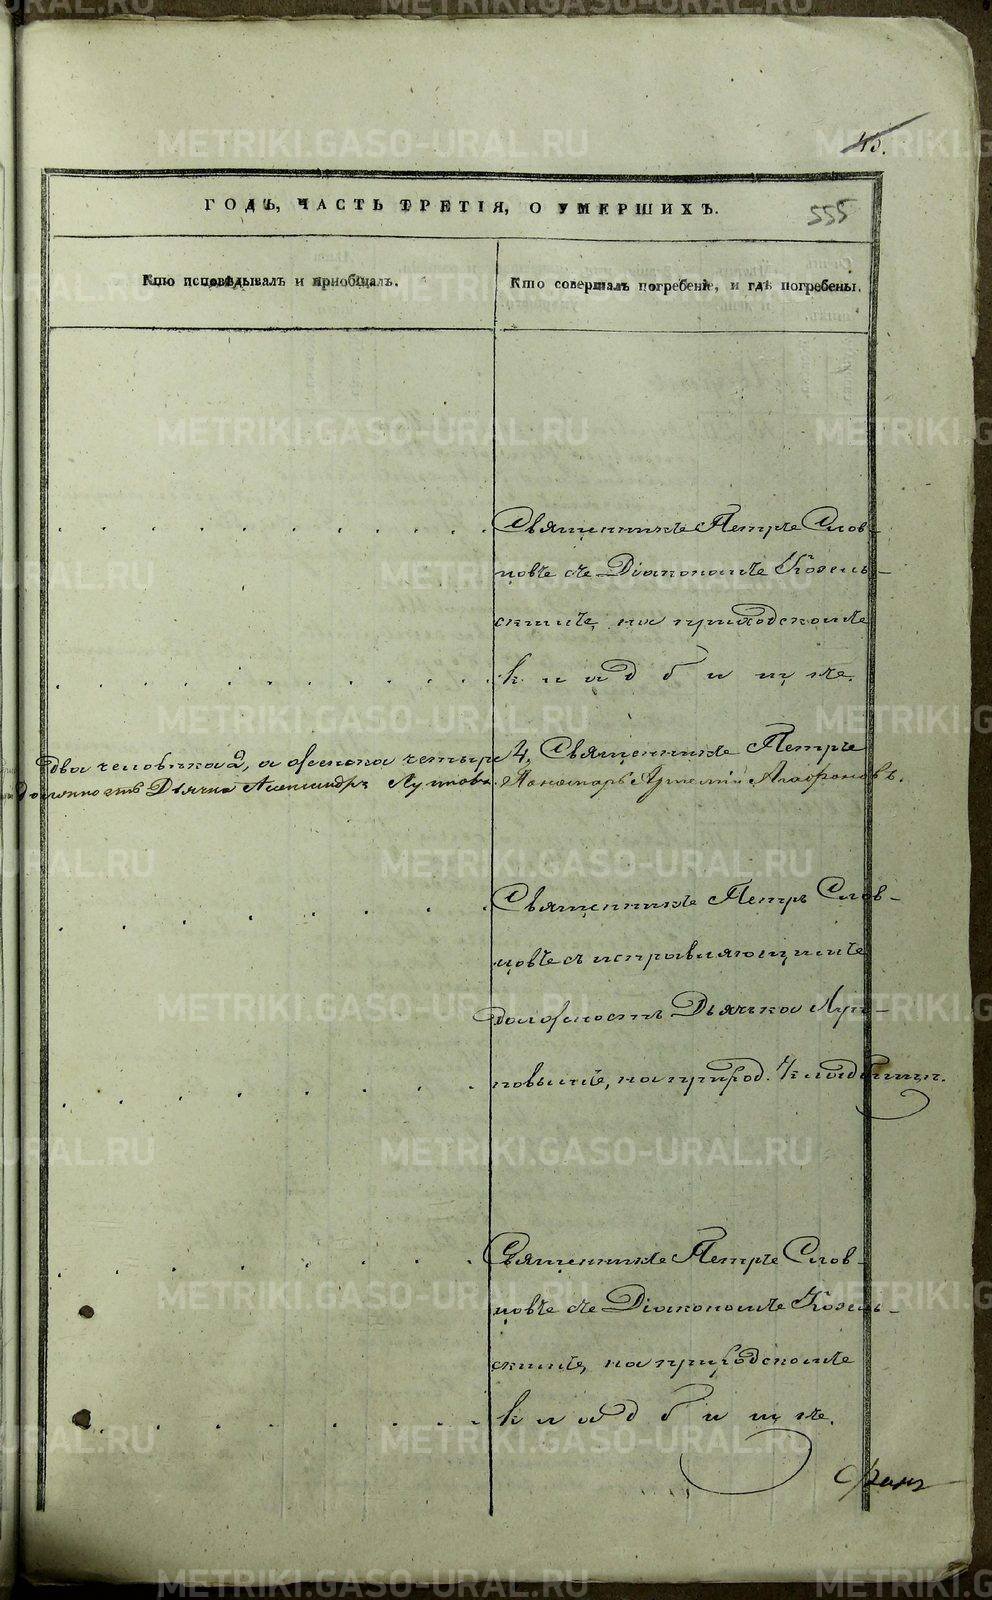 45.
ГОДЪ, ЧАСТЬ ТРЕТІЯ, О УМЕРШИХЪ.
555
Кто исповѣдывалъ и пріобщалъ.
Кто совершалъ погребеніе, и гдѣ погребены.
Священникъ Петръ Слов-
цовъ съ Діакономъ Козель-
скимъ, на приходскомъ
кладбищѣ.
два человѣка 2, а женска четыре 4, Священникъ Петръ
должность Дьячка Александръ Луповъ. Пономарь Агафоновъ.
Священникъ Петръ Слов-
цовъ съ исправляющимъ
должность Дьячка Лу-
повымъ, на приход. кладбищи.
Священникъ Петръ Слов-
цовъ съ Діакономъ Козель-
скимъ, на приходскомъ
кладбищѣ.
METRIKI.GASO-URAL.RU